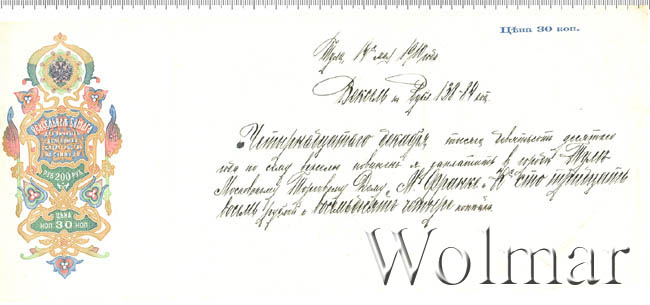 Цѣна 30 коп.
Тула, 14го мая 1910 года
Вексель на Рубл. 138-84 коп.
ВЕКСЕЛЬНАЯ БУМАГА
ДО 200 РУБ.
ЦѢНА
КОП 30 КОП
Четырнадцатаго декабря тысяча девятьсот десятаго
года по сему векселю повиненъ я заплатить в городѣ Туле
Московскому Торговому Дому „М. Франке и Ко" сто тридцать
восемь рублей и восемьдесятъ четыре копѣйки.
Wolmar